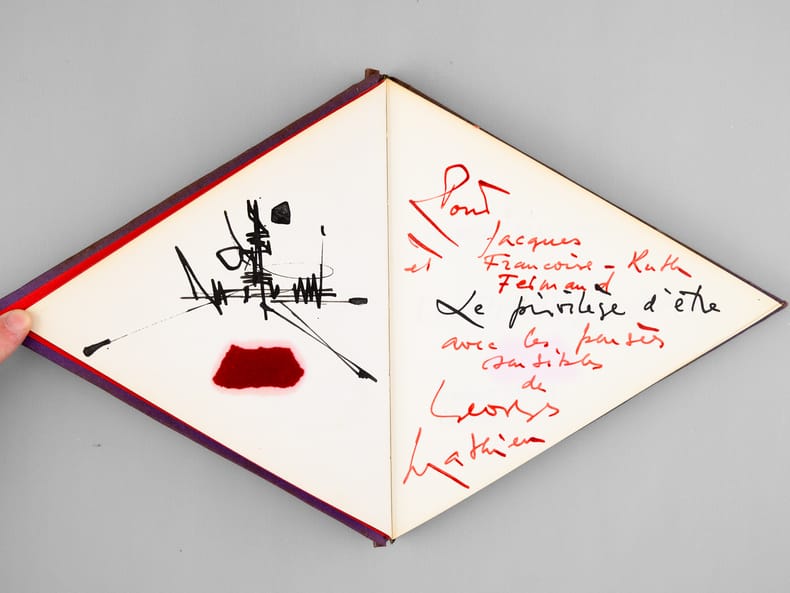 Pour
Jacques
et Françoise - Ruth
Fermand
Le privilège d'être
avec les pensées
sensibles
de
Georges
Mathieu